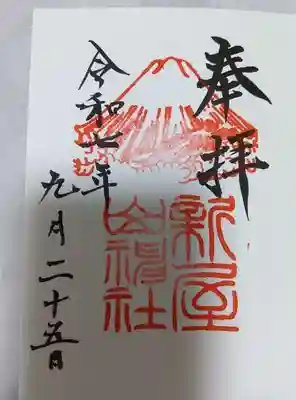 奉拝
新屋
山神社
令和七年
九月二十五日